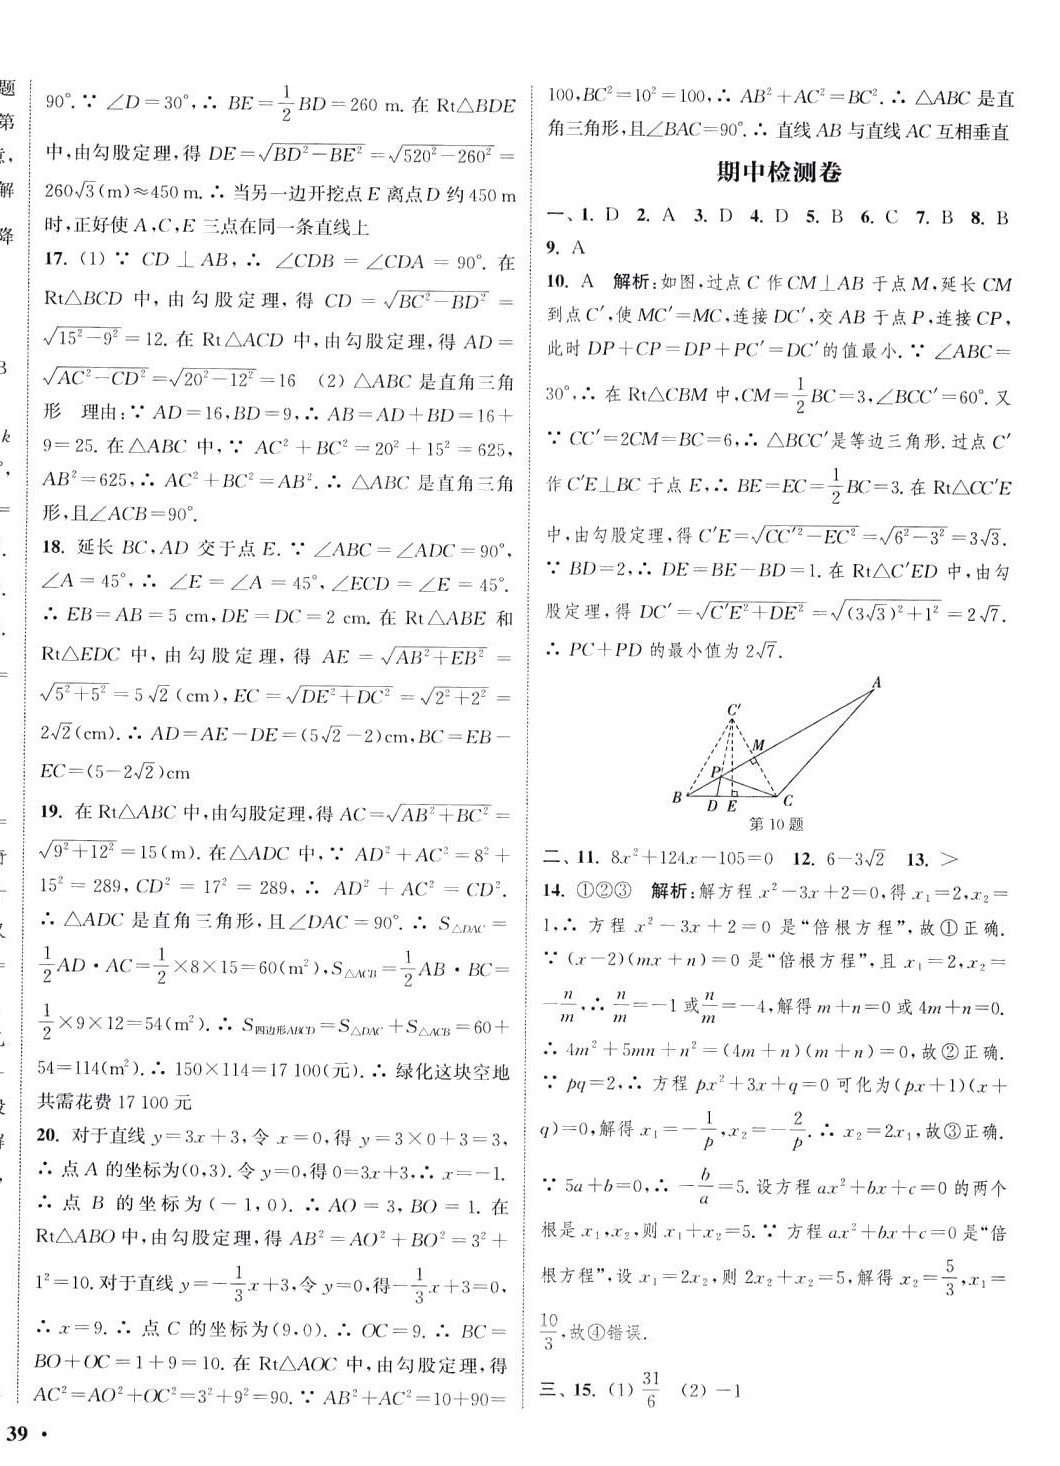 90°.∵ ∠D=30°,∴ BE=1/2BD=260 m.在 Rt△BDE
中,由勾股定理,得 DE=√(BD²-BE²)=√(520²-260²)=
260√3(m)≈450 m.∴ 当另一边开挖点 E 离点 D 约 450 m
时,正好使 A,C,E 三点在同一条直线上
17. (1) ∵ CD⊥AB,∴ ∠CDB=∠CDA=90°.在
Rt△BCD 中,由勾股定理,得 CD=√(BC²-BD²)=
√(15²-9²)=12.在 Rt△ACD 中,由勾股定理,得 AD=
√(AC²-CD²)=√(20²-12²)=16 (2) △ABC 是直角三角
形 理由:∵ AD=16,BD=9,∴ AB=AD+BD=16+
9=25.在△ABC 中,∵ AC²+BC²=20²+15²=625,
AB²=625,∴ AC²+BC²=AB².∴ △ABC 是直角三角
形,且∠ACB=90°.
18. 延长 BC,AD 交于点 E.∵ ∠ABC=∠ADC=90°,
∠A=45°,∴ ∠E=∠A=45°,∠ECD=∠E=45°.
∴ EB=AB=5 cm,DE=DC=2 cm.在 Rt△ABE 和
Rt△EDC 中,由勾股定理,得 AE=√(AB²+EB²)=
√(5²+5²)=5√2(cm),EC=√(DE²+DC²)=√(2²+2²)=
2√2(cm).∴ AD=AE-DE=(5√2-2)cm,BC=EB-
EC=(5-2√2)cm
19. 在 Rt△ABC 中,由勾股定理,得 AC=√(AB²+BC²)=
√(9²+12²)=15(m).在△ADC 中,∵ AD²+AC²=8²+
15²=289,CD²=17²=289,∴ AD²+AC²=CD².
∴ △ADC 是直角三角形,且∠DAC=90°.∴ S△DAC=
1/2AD·AC=1/2×8×15=60(m²),S△ACB=1/2AB·BC=
1/2×9×12=54(m²).∴ S四边形ABCD=S△DAC+S△ACB=60+
54=114(m²).∴ 150×114=17 100(元).∴ 绿化这块空地
共需花费 17 100 元
20. 对于直线 y=3x+3,令 x=0,得 y=3×0+3=3,
∴ 点 A 的坐标为(0,3).令 y=0,得 0=3x+3,∴ x=-1.
∴ 点 B 的坐标为(-1,0).∴ AO=3,BO=1.在
Rt△ABO 中,由勾股定理,得 AB²=AO²+BO²=3²+
1²=10.对于直线 y=-1/3x+3,令 y=0,得-1/3x+3=0,
∴ x=9.∴ 点 C 的坐标为(9,0).∴ OC=9.∴ BC=
BO+OC=1+9=10.在 Rt△AOC 中,由勾股定理,得
AC²=AO²+OC²=3²+9²=90.∵ AB²+AC²=10+90=
39 ·
100,BC²=10²=100,∴ AB²+AC²=BC².∴ △ABC 是直
角三角形,且∠BAC=90°.∴ 直线 AB 与直线 AC 互相垂直
期中检测卷
一、1. D 2. A 3. D 4. D 5. B 6. C 7. B 8. B
9. A
10. A 解析:如图,过点 C 作 CM⊥AB 于点 M,延长 CM
到点 C′,使 MC′=MC,连接 DC′,交 AB 于点 P,连接 CP,
此时 DP+CP=DP+PC′=DC′的值最小.∵ ∠ABC=
30°,∴ 在 Rt△CBM 中,CM=1/2BC=3,∠BCC′=60°.又
∵ CC′=2CM=BC=6,∴ △BCC′是等边三角形.过点 C′
作 C′E⊥BC 于点 E,∴ BE=EC=1/2BC=3.在 Rt△CC′E
中,由勾股定理,得 C′E=√(CC′²-EC²)=√(6²-3²)=3√3.
∵ BD=2,∴ DE=BE-BD=1.在 Rt△C′ED 中,由勾
股定理,得 DC′=√(C′E²+DE²)=√((3√3)²+1²)=2√7.
∴ PC+PD 的最小值为 2√7.
A
C′
M
P
B D E C
第 10 题
二、11. 8x²+124x-105=0 12. 6-3√2 13. >
14. ①②③ 解析:解方程 x²-3x+2=0,得 x₁=2,x₂=
1,∴ 方程 x²-3x+2=0 是“倍根方程”,故①正确.
∵ (x-2)(mx+n)=0 是“倍根方程”,且 x₁=2,x₂=
-n/m,∴ n/m=-1 或 n/m=-4,解得 m+n=0 或 4m+n=0.
∴ 4m²+5mn+n²=(4m+n)(m+n)=0,故②正确.
∵ pq=2,∴ 方程 px²+3x+q=0 可化为(px+1)(x+
q)=0,解得 x₁=-1/p,x₂=-2/p.∴ x₂=2x₁,故③正确.
∵ 5a+b=0,∴ -b/a=5.设方程 ax²+bx+c=0 的两个
根是 x₁,x₂,则 x₁+x₂=5.∵ 方程 ax²+bx+c=0 是“倍
根方程”,设 x₁=2x₂,则 2x₂+x₂=5,解得 x₂=5/3,x₁=
10/3,故④错误.
三、15. (1) 31/6 (2) -1